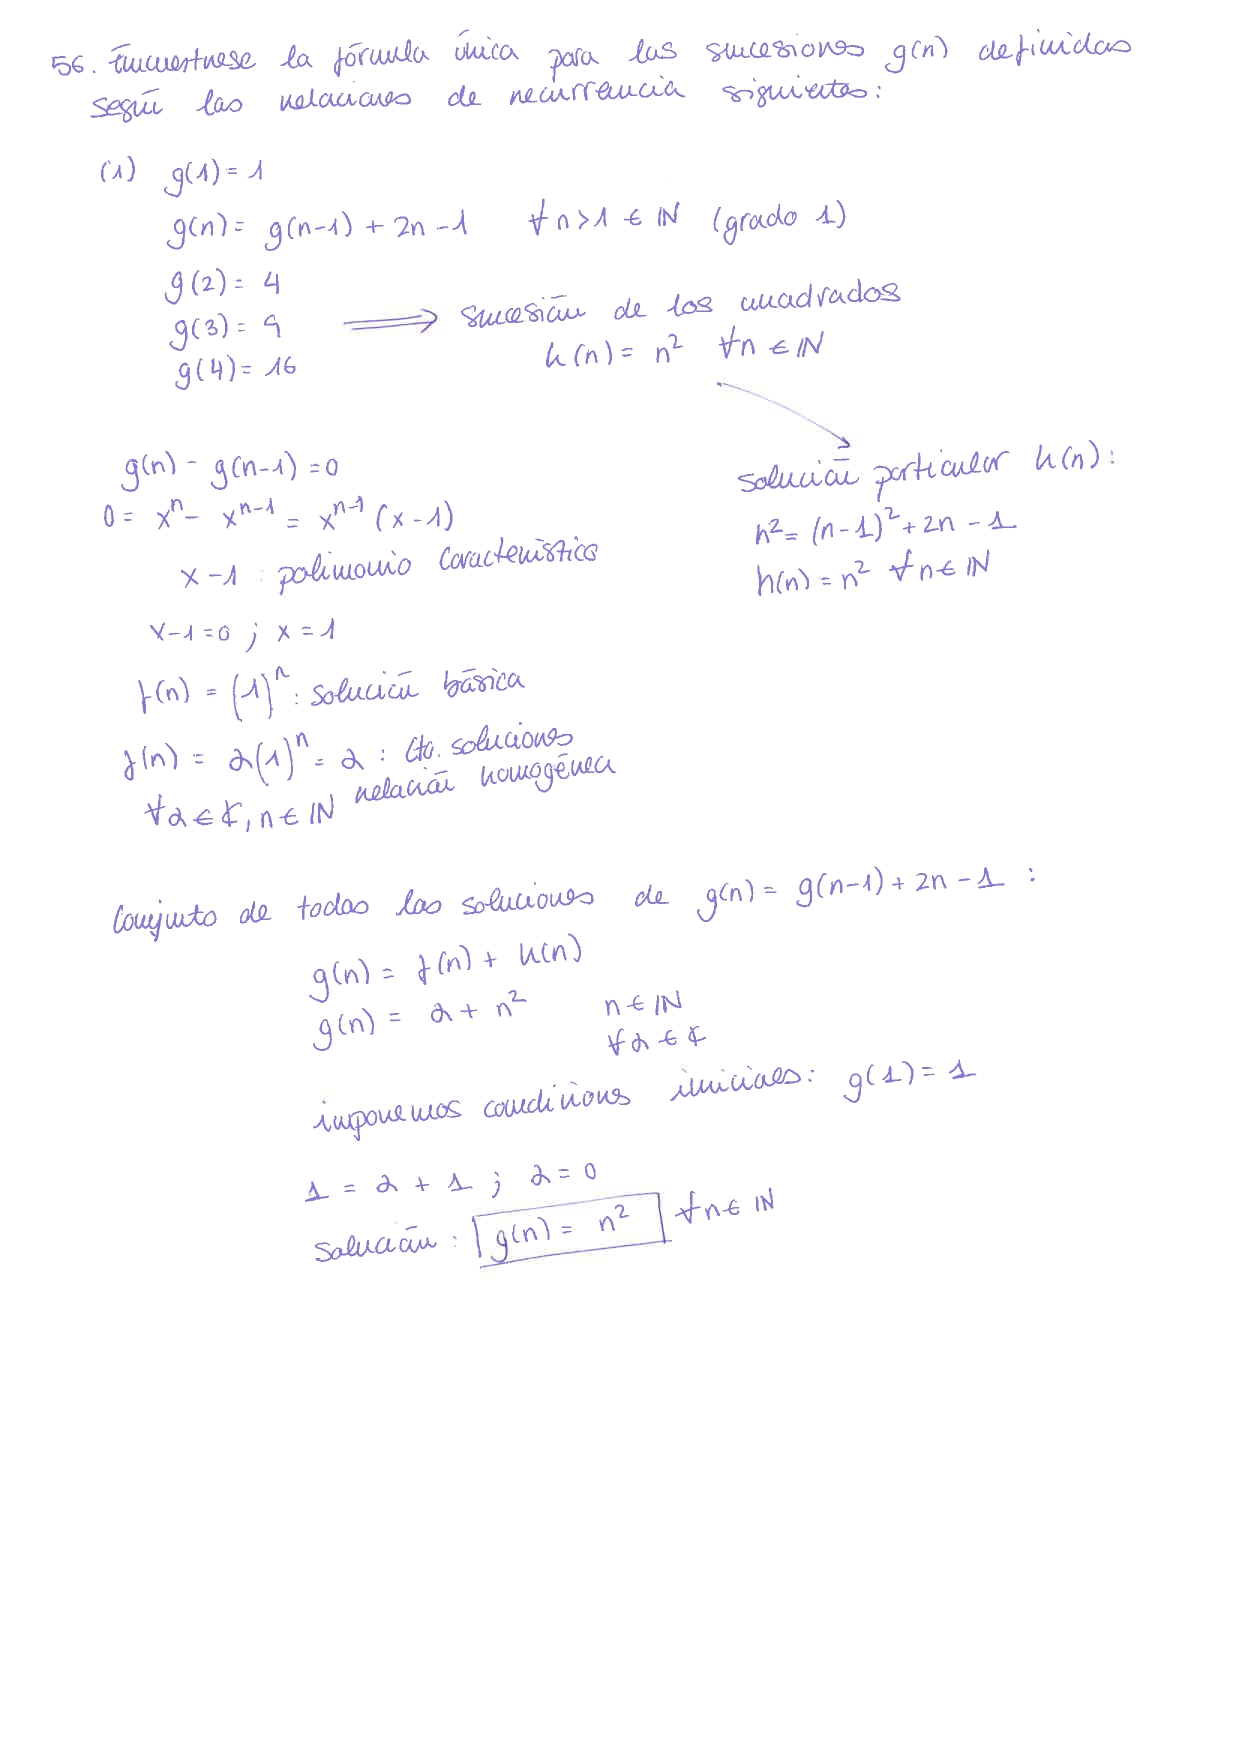 56. Encuéntrese la fórmula única para las sucesiones g(n) definidas
según las relaciones de recurrencia siguientes:
(1) g(1) = 1
g(n) = g(n-1) + 2n - 1 ∀n > 1 ∈ ℕ (grado 1)
g(2) = 4
g(3) = 9 ⟹ sucesión de los cuadrados
g(4) = 16 h(n) = n² ∀n ∈ ℕ
g(n) - g(n-1) = 0
0 = xⁿ - xⁿ⁻¹ = xⁿ⁻¹ (x-1)
x - 1 : polinomio característico
x - 1 = 0 ; x = 1
f(n) = (1)ⁿ : solución básica
f(n) = α(1)ⁿ = α : Cto. soluciones
relación homogénea
∀α ∈ ℂ, n ∈ ℕ
solución particular h(n) :
n² = (n-1)² + 2n - 1
h(n) = n² ∀n ∈ ℕ
Conjunto de todas las soluciones de g(n) = g(n-1) + 2n - 1 :
g(n) = f(n) + h(n)
g(n) = α + n² n ∈ ℕ
∀α ∈ ℂ
imponemos condicions iniciales: g(1) = 1
1 = α + 1 ; α = 0
Solución : g(n) = n² ∀n ∈ ℕ